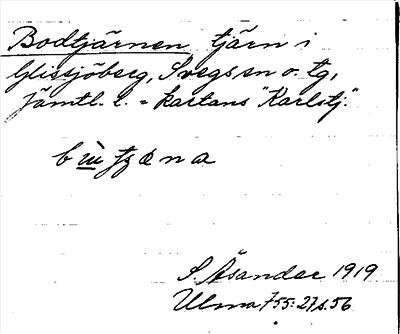 Bodtjärnen tjärn i
Glissjöberg, Svegs sn o. tg,
Jämtl. l. = kartans "Karlstj."
S. Åsander 1919
Ulma 755: 27 s. 56